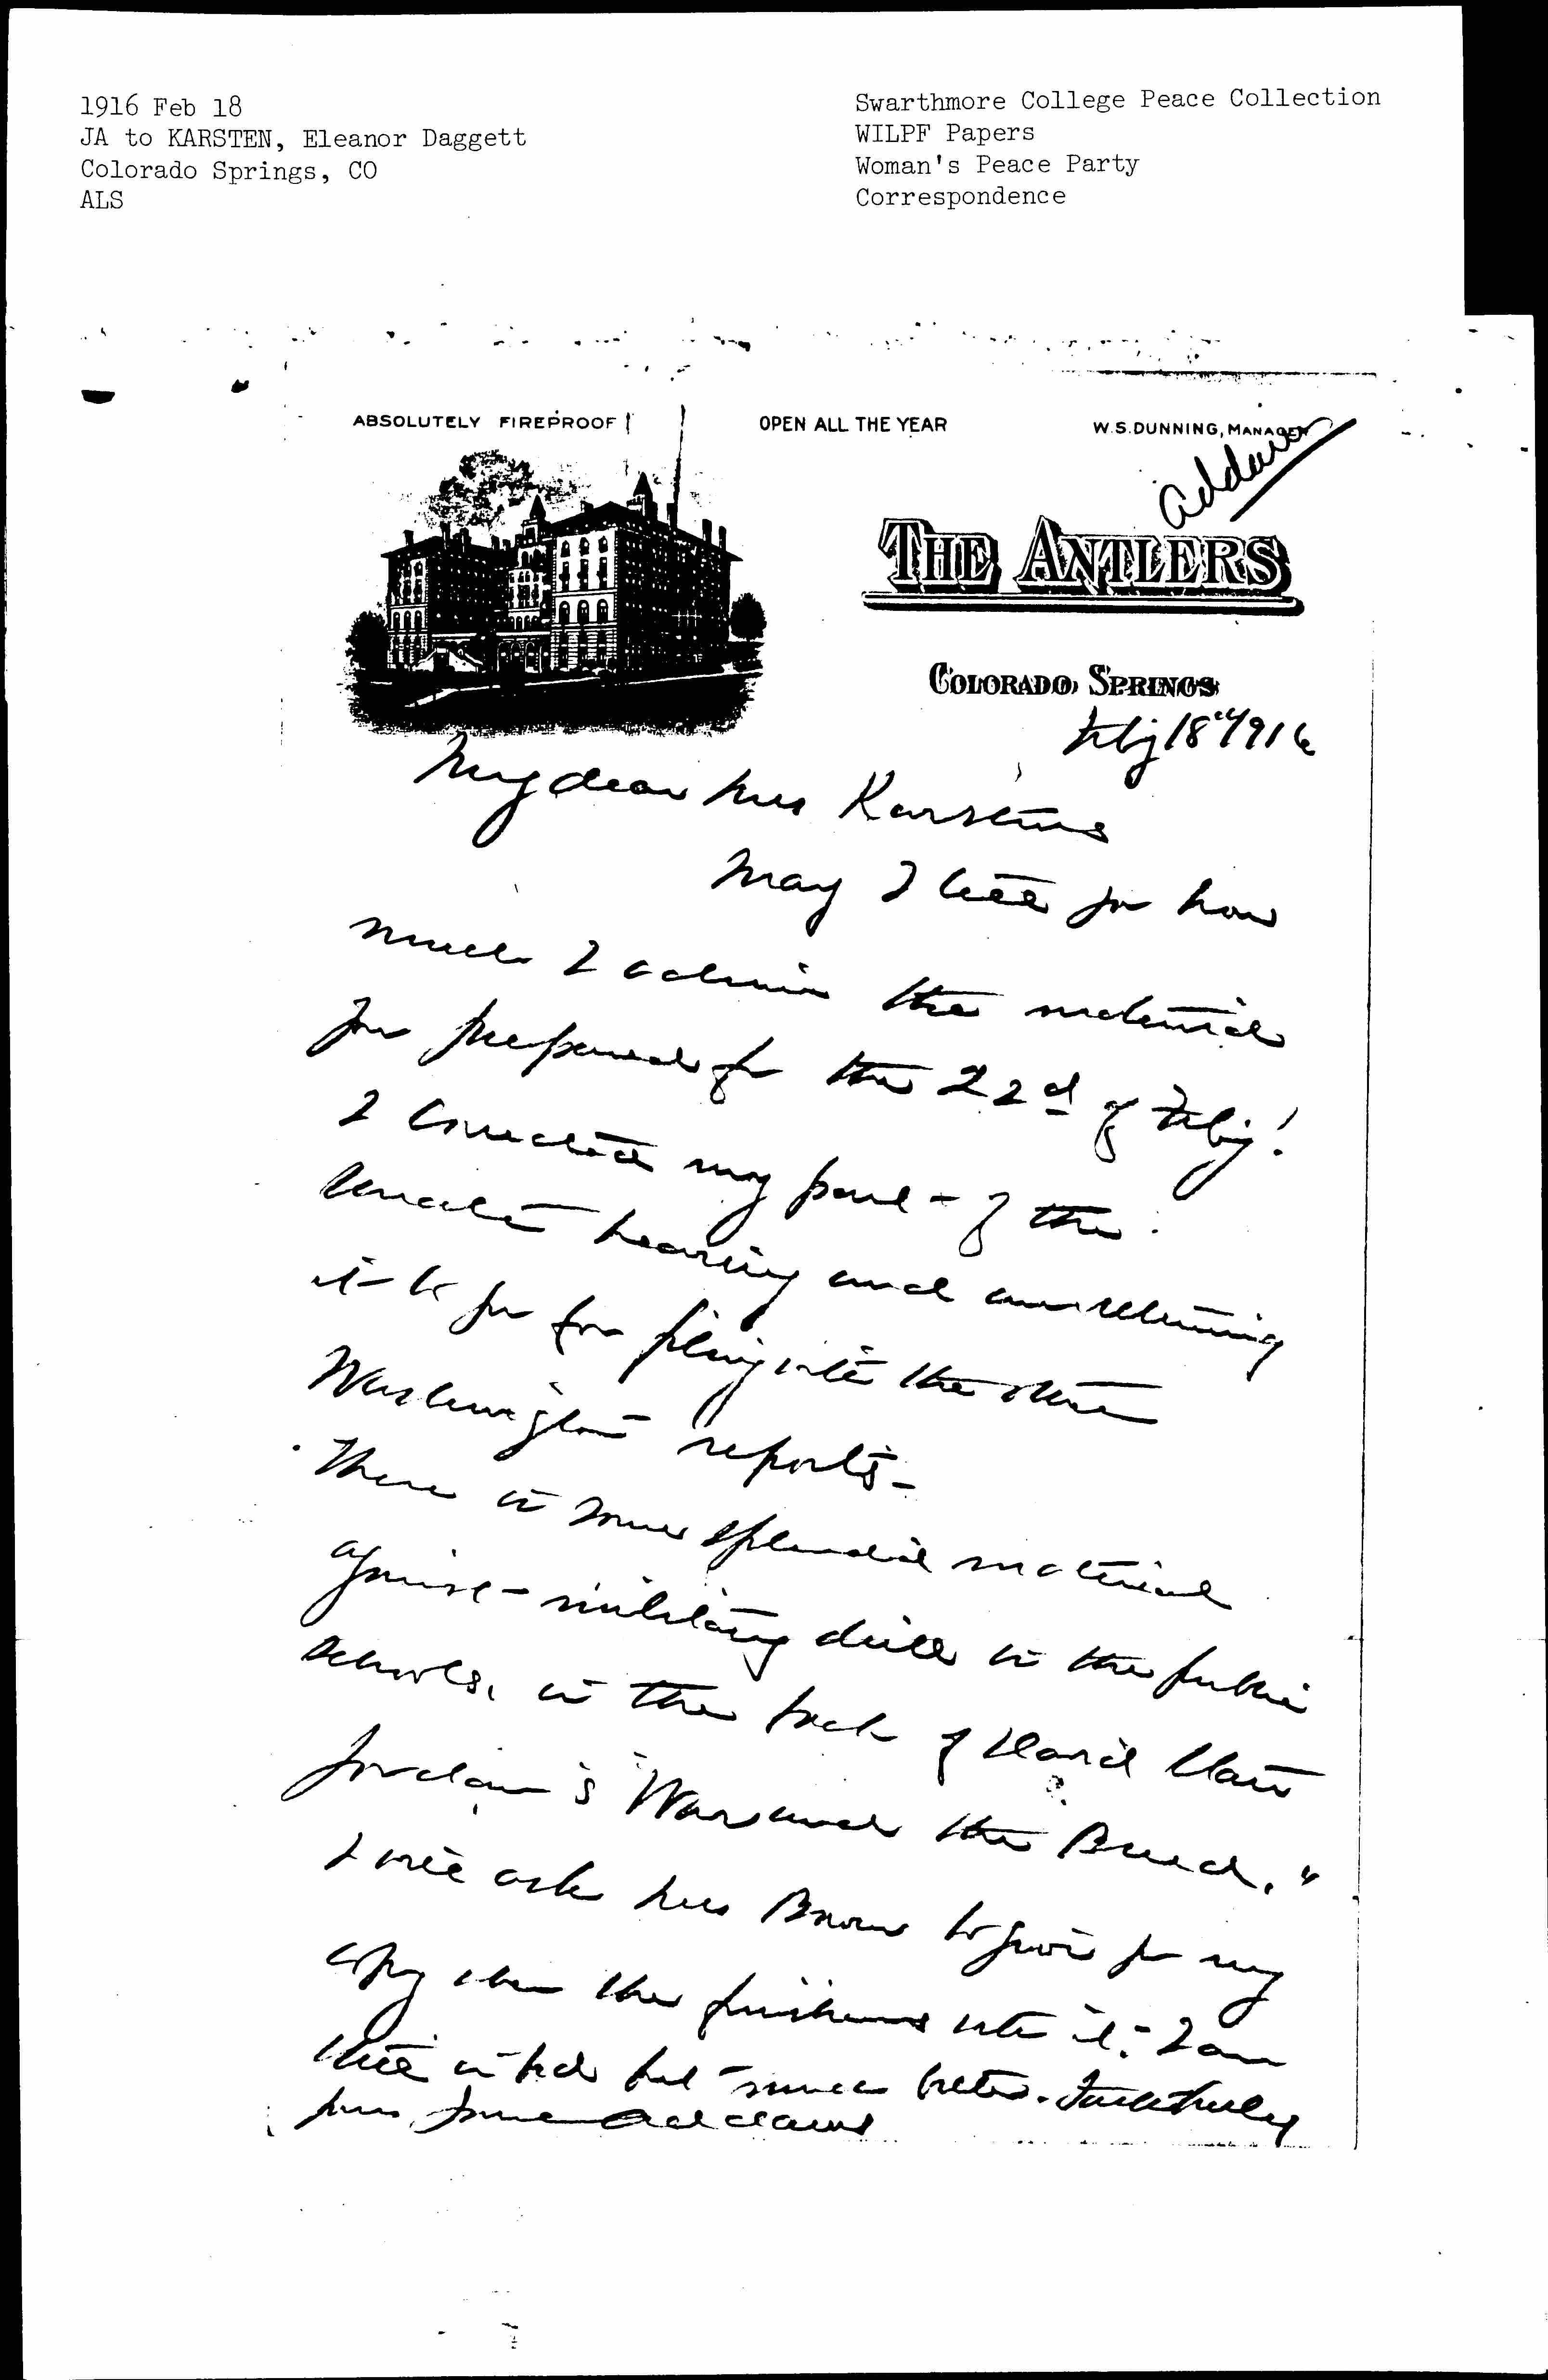 1916 Feb 18
JA to KARSTEN, Eleanor Daggett
Colorado Springs, CO
ALS
Swarthmore College Peace Collection
WILPF Papers
Woman's Peace Party
Correspondence
ABSOLUTELY FIREPROOF
OPEN ALL THE YEAR
W.S.DUNNING, MANAGER
Addams
THE ANTLERS
COLORADO SPRINGS
Feby 18" 1916
My dear Mrs Karstens
May I tell you how
much I admire the material
you prepared for the 22d of Feby!
I corrected my part of the
Senate hearing and am returning
it to you for filing with the other
Washington reports -
There is some splendid material
against military drill in the public
schools, in the back of David Starr
Jordan's "War and the Breed."
I will ask Mrs Bowen to give you my
copy when she finishes with it. I am
still in bed but much better. Faithfully
yours Jane Addams